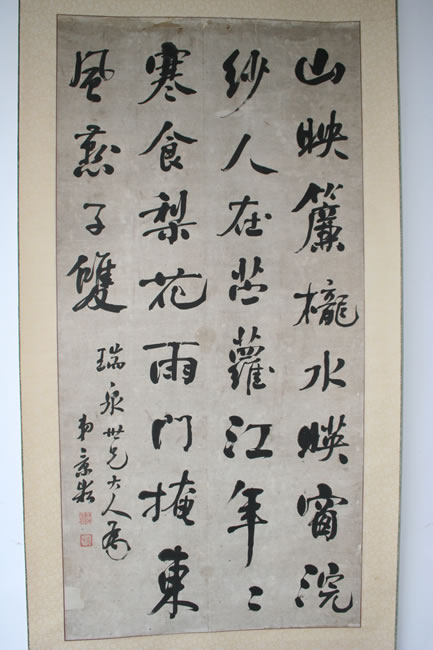 山映簾櫳水暎窗浣
紗人在苎蘿江年〻
寒食梨花雨門掩東
風燕子雙
瑞泉世兄大人属